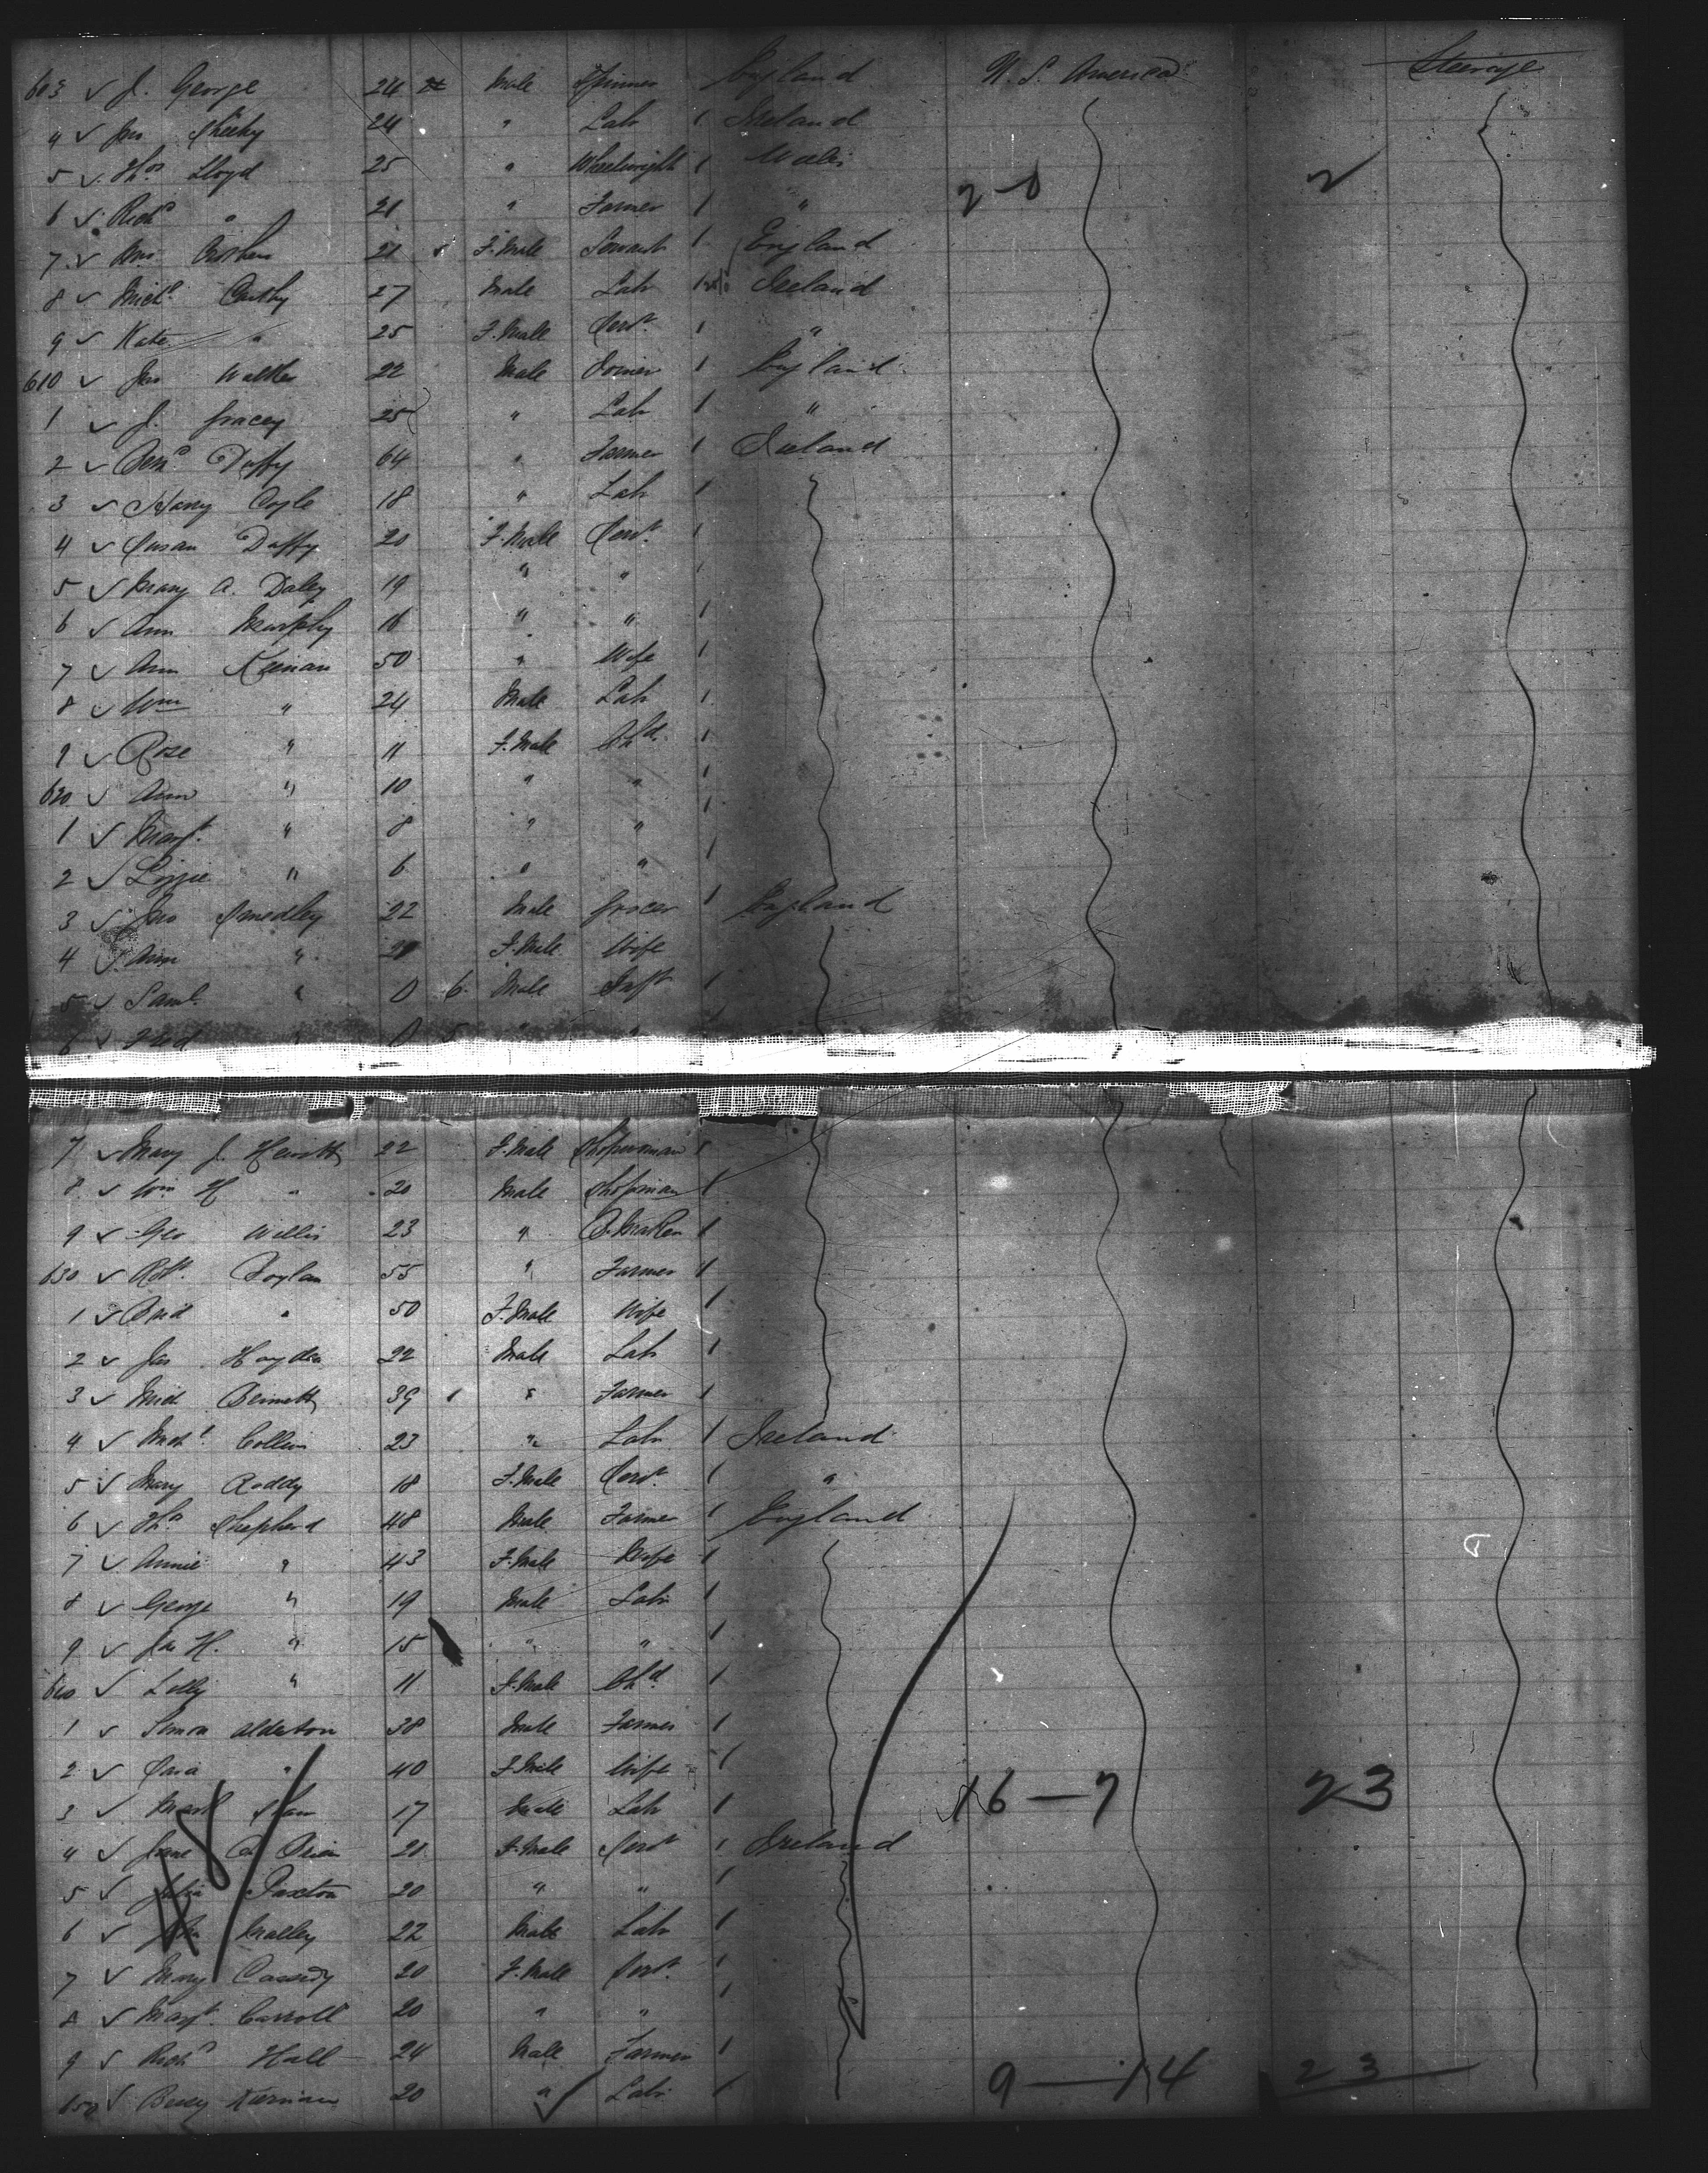 603 ✓ J. George 24 Male Spinner England U. S. America Steerage
4 ✓ Jas Sheehy 24 " Lab 1 Ireland
5 ✓ Thos Lloyd 25 " Wheelwright 1 Wales
6 ✓ Richd " 21 " Farmer 1 " 2-0 2
7 ✓ 21 F.Male Servant 1 England
8 ✓ Michl Carthy 27 Male Lab 1 Ireland
9 ✓ Kate " 25 F.Male Servt 1 "
610 ✓ Jas Walker 22 Male 1 England
1 ✓ J. Gracey 25 " Lab 1 "
2 ✓ Duffy 64 " Farmer 1 Ireland
3 ✓ Harry Coyle 18 " Lab 1
4 ✓ Susan Duffy 20 F.Male Servt 1
5 ✓ Mary A. Daley 19 " "
6 ✓ Ann Murphy 16 " " 1
7 ✓ Ann Keenan 50 " Wife 1
8 ✓ Wm " 24 Male Lab 1
9 ✓ Rose " 11 F.Male Chd 1
620 ✓ Ann " 10 " " 1
1 ✓ Margt " 8 " " 1
2 ✓ Lizzie " 6 " " 1
3 ✓ Jno Smedley 22 Male Grocer 1 England
4 ✓ Ann " F.Male Wife
5 ✓ Saml " 0 6 Male Inft 1
6 ✓ Fred " 0 " "
7 ✓ Mary J. Hewitt 22 F.Male Shopwoman 1
8 ✓ Wm H " 20 Male Shopman 1
9 ✓ Geo Willis 23 " B.Maker 1
630 ✓ Robt Boylan 55 " Farmer 1
1 ✓ Brid " 50 F.Male Wife 1
2 ✓ Jas Hayden 22 Male Lab 1
3 ✓ Bennett 39 " Farmer 1
4 ✓ Michl Collins 23 " Lab 1 Ireland
5 ✓ Mary Roddy 18 F.Male Servt 1 "
6 ✓ Thos Shepherd 48 Male Farmer 1 England
7 ✓ Annie " 43 F.Male Wife 1
8 ✓ George " 19 Male Lab 1
9 ✓ Jas H. " 15 " " 1
640 ✓ Lilly " 11 F.Male Chd 1
1 ✓ Simon Alderton 38 Male Farmer 1
2 ✓ Sara " 40 F.Male Wife 1
3 ✓ 17 Male Lab 1 16-7 23
4 ✓ Jane 20 F.Male Servt 1 Ireland
5 ✓ Julia Paxton 20 " " 1
6 ✓ John Malley 22 Male Lab 1
7 ✓ Mary Cassidy 20 F.Male Servt 1
8 ✓ Margt Carroll 20 " " 1
9 ✓ Richd Hall 24 Male Farmer 1
650 ✓ Kiernan 20 " Lab 1 9-14 23